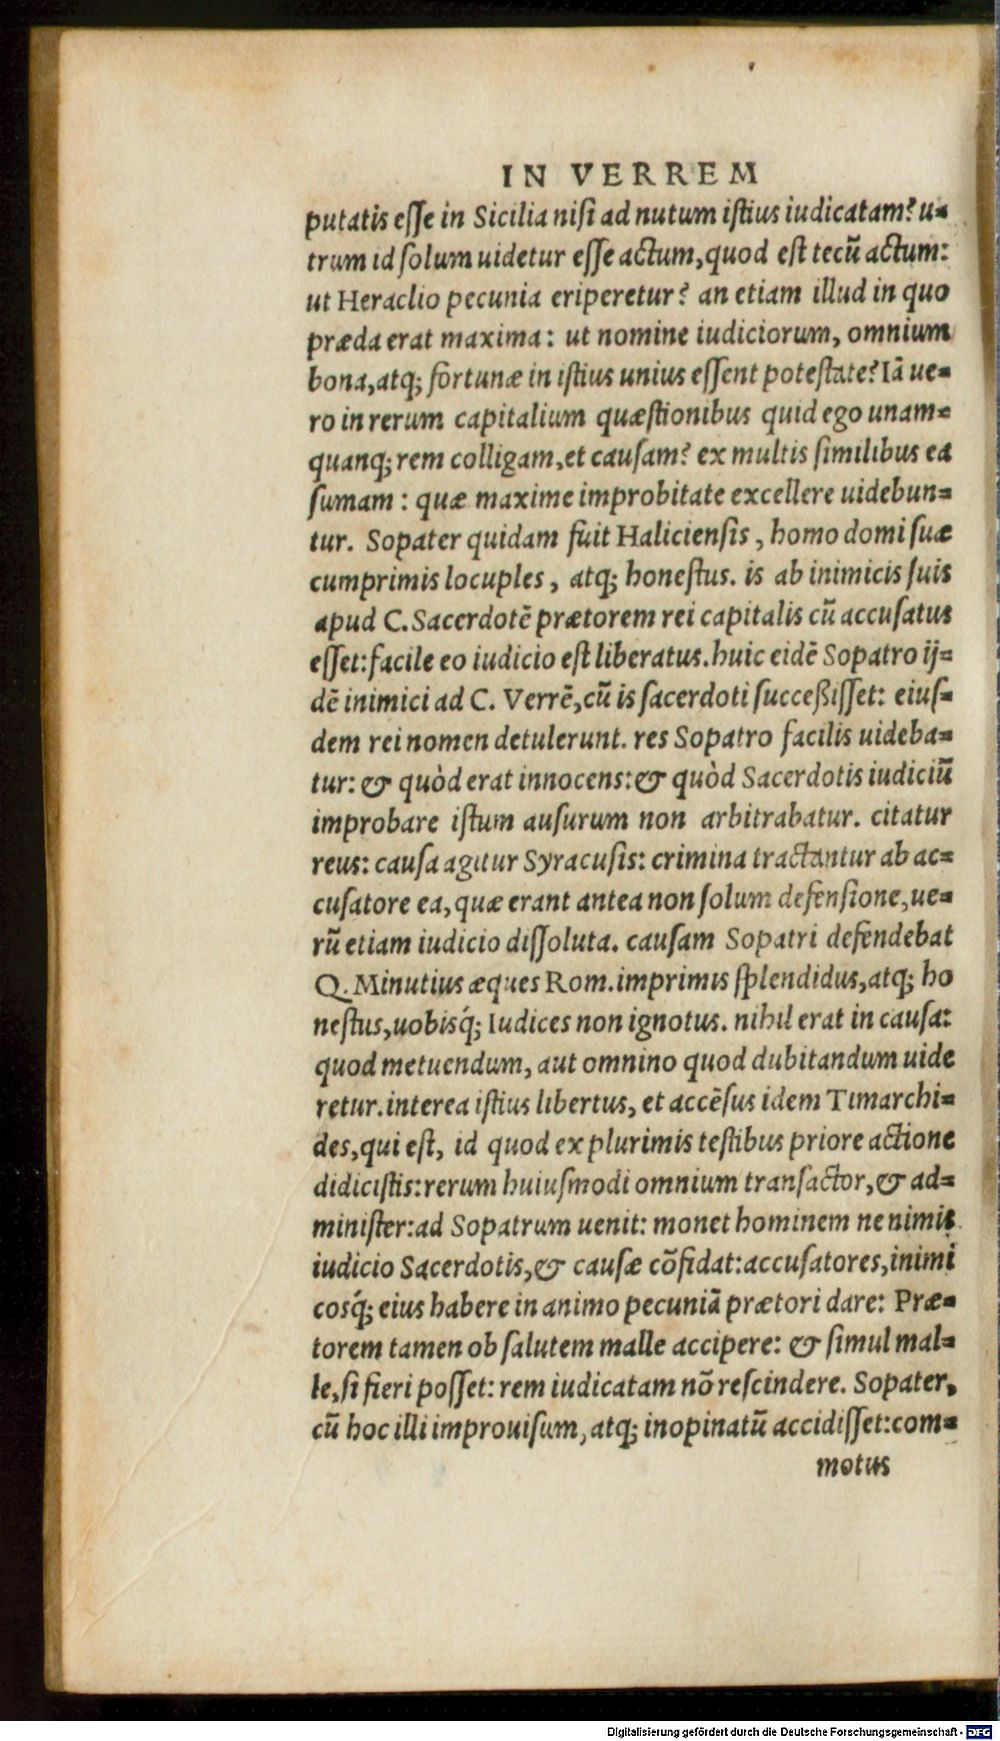 IN VERREM
putatis eſſe in Sicilia niſi ad nutum iſtius iudicatam? u-
trum id ſolum uidetur eſſe actum, quod eſt tecū actum:
ut Heraclio pecunia eriperetur? an etiam illud in quo
præda erat maxima: ut nomine iudiciorum, omnium
bona, atq; fortunæ in iſtius unius eſſent poteſtate? Iā ue-
ro in rerum capitalium quæſtionibus quid ego unam-
quanq; rem colligam, et cauſam? ex multis ſimilibus ea
ſumam: quæ maxime improbitate excellere uidebun-
tur. Sopater quidam fuit Halicienſis, homo domi ſuæ
cumprimis locuples, atq; honeſtus. is ab inimicis ſuis
apud C. Sacerdotē prætorem rei capitalis cū accuſatus
eſſet: facile eo iudicio eſt liberatus. huic eidē Sopatro ij-
dē inimici ad C. Verrē, cū is ſacerdoti succeßiſſet: eiuſ-
dem rei nomen detulerunt. res Sopatro facilis uideba-
tur: & quòd erat innocens: & quòd Sacerdotis iudiciū
improbare iſtum auſurum non arbitrabatur. citatur
reus: cauſa agitur Syracuſis: crimina tractantur ab ac-
cuſatore ea, quæ erant antea non ſolum defenſione, ue-
rū etiam iudicio diſſoluta. cauſam Sopatri defendebat
Q. Minutius æques Rom. imprimis ſplendidus, atq; ho
neſtus, uobisq́; Iudices non ignotus. nihil erat in cauſa:
quod metuendum, aut omnino quod dubitandum uide
retur. interea iſtius libertus, et accēſus idem Timarchi-
des, qui eſt, id quod ex plurimis teſtibus priore actione
didiciſtis: rerum huiuſmodi omnium tranſactor, & ad-
miniſter: ad Sopatrum uenit: monet hominem ne nimis
iudicio Sacerdotis, & cauſæ cōfidat: accuſatores, inimi
cosq́; eius habere in animo pecuniā prætori dare: Præ-
torem tamen ob ſalutem malle accipere: & ſimul mal-
le, ſi fieri poſſet: rem iudicatam nō reſcindere. Sopater,
cū hoc illi improuiſum, atq; inopinatū accidiſſet: com-
motus
Digitalisierung gefördert durch die Deutsche Forschungsgemeinschaft - DFG